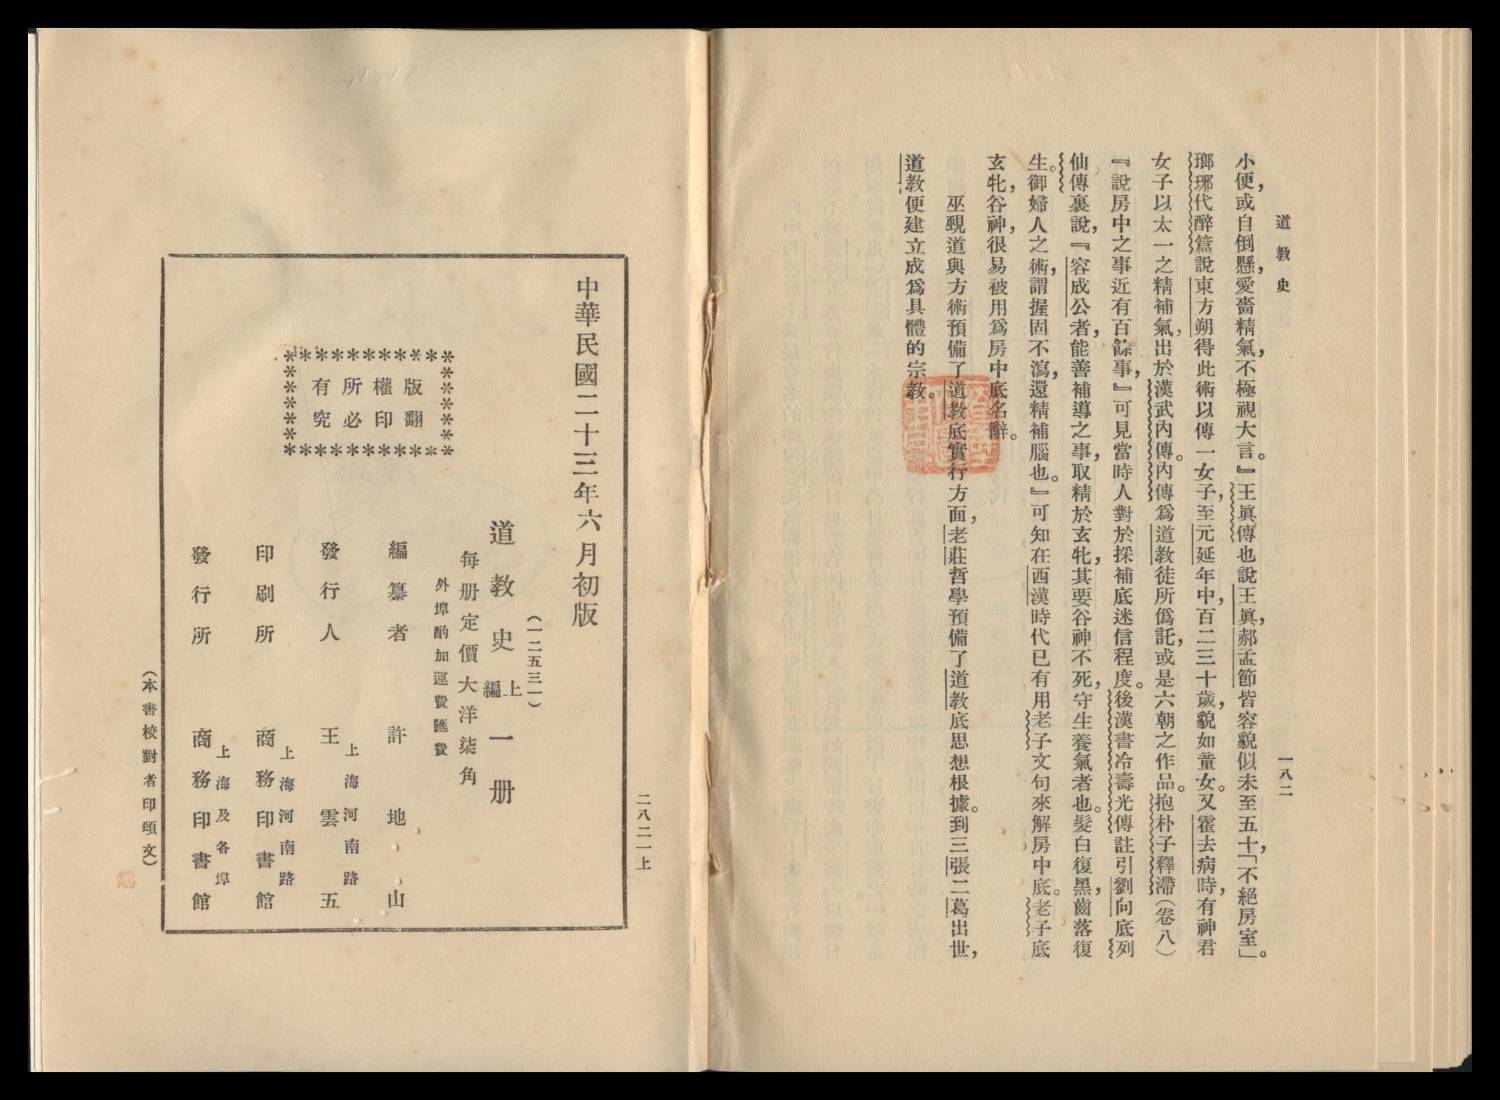 道教史
一八二
小便，或自倒懸，愛嗇精氣，不極視大言。』王眞傳也說王眞，郝孟節皆容貌似未至五十，「不絕房室」。
瑯琊代醉篇說東方朔得此術以傳一女子，至元延年中，百二三十歲，貌如童女。又霍去病時，有神君
女子以太一之精補氣，出於漢武內傳。內傳爲道教徒所僞託，或是六朝之作品。抱朴子釋滯（卷八）
『說房中之事近有百餘事，』可見當時人對於採補底迷信程度。後漢書冷壽光傳註引劉向底列
仙傳裏說，『容成公者，能善補導之事，取精於玄牝，其要谷神不死，守生養氣者也。髮白復黑，齒落復
生。御婦人之術，謂握固不瀉，還精補腦也。』可知在西漢時代已有用老子文句來解房中底。老子底
玄牝，谷神，很易被用爲房中底名辭。
巫覡道與方術預備了道教底實行方面，老莊哲學預備了道教底思想根據。到三張二葛出世，
道教便建立成爲具體的宗教。
二八二一上
中華民國二十三年六月初版
（一二五三一）
道教史上編一册
每册定價大洋柒角
外埠酌加運費匯費
版權所有
翻印必究
編纂者 許地山
發行人 上海河南路 王雲五
印刷所 上海河南路 商務印書館
發行所 上海及各埠 商務印書館
（本書校對者印頌文）